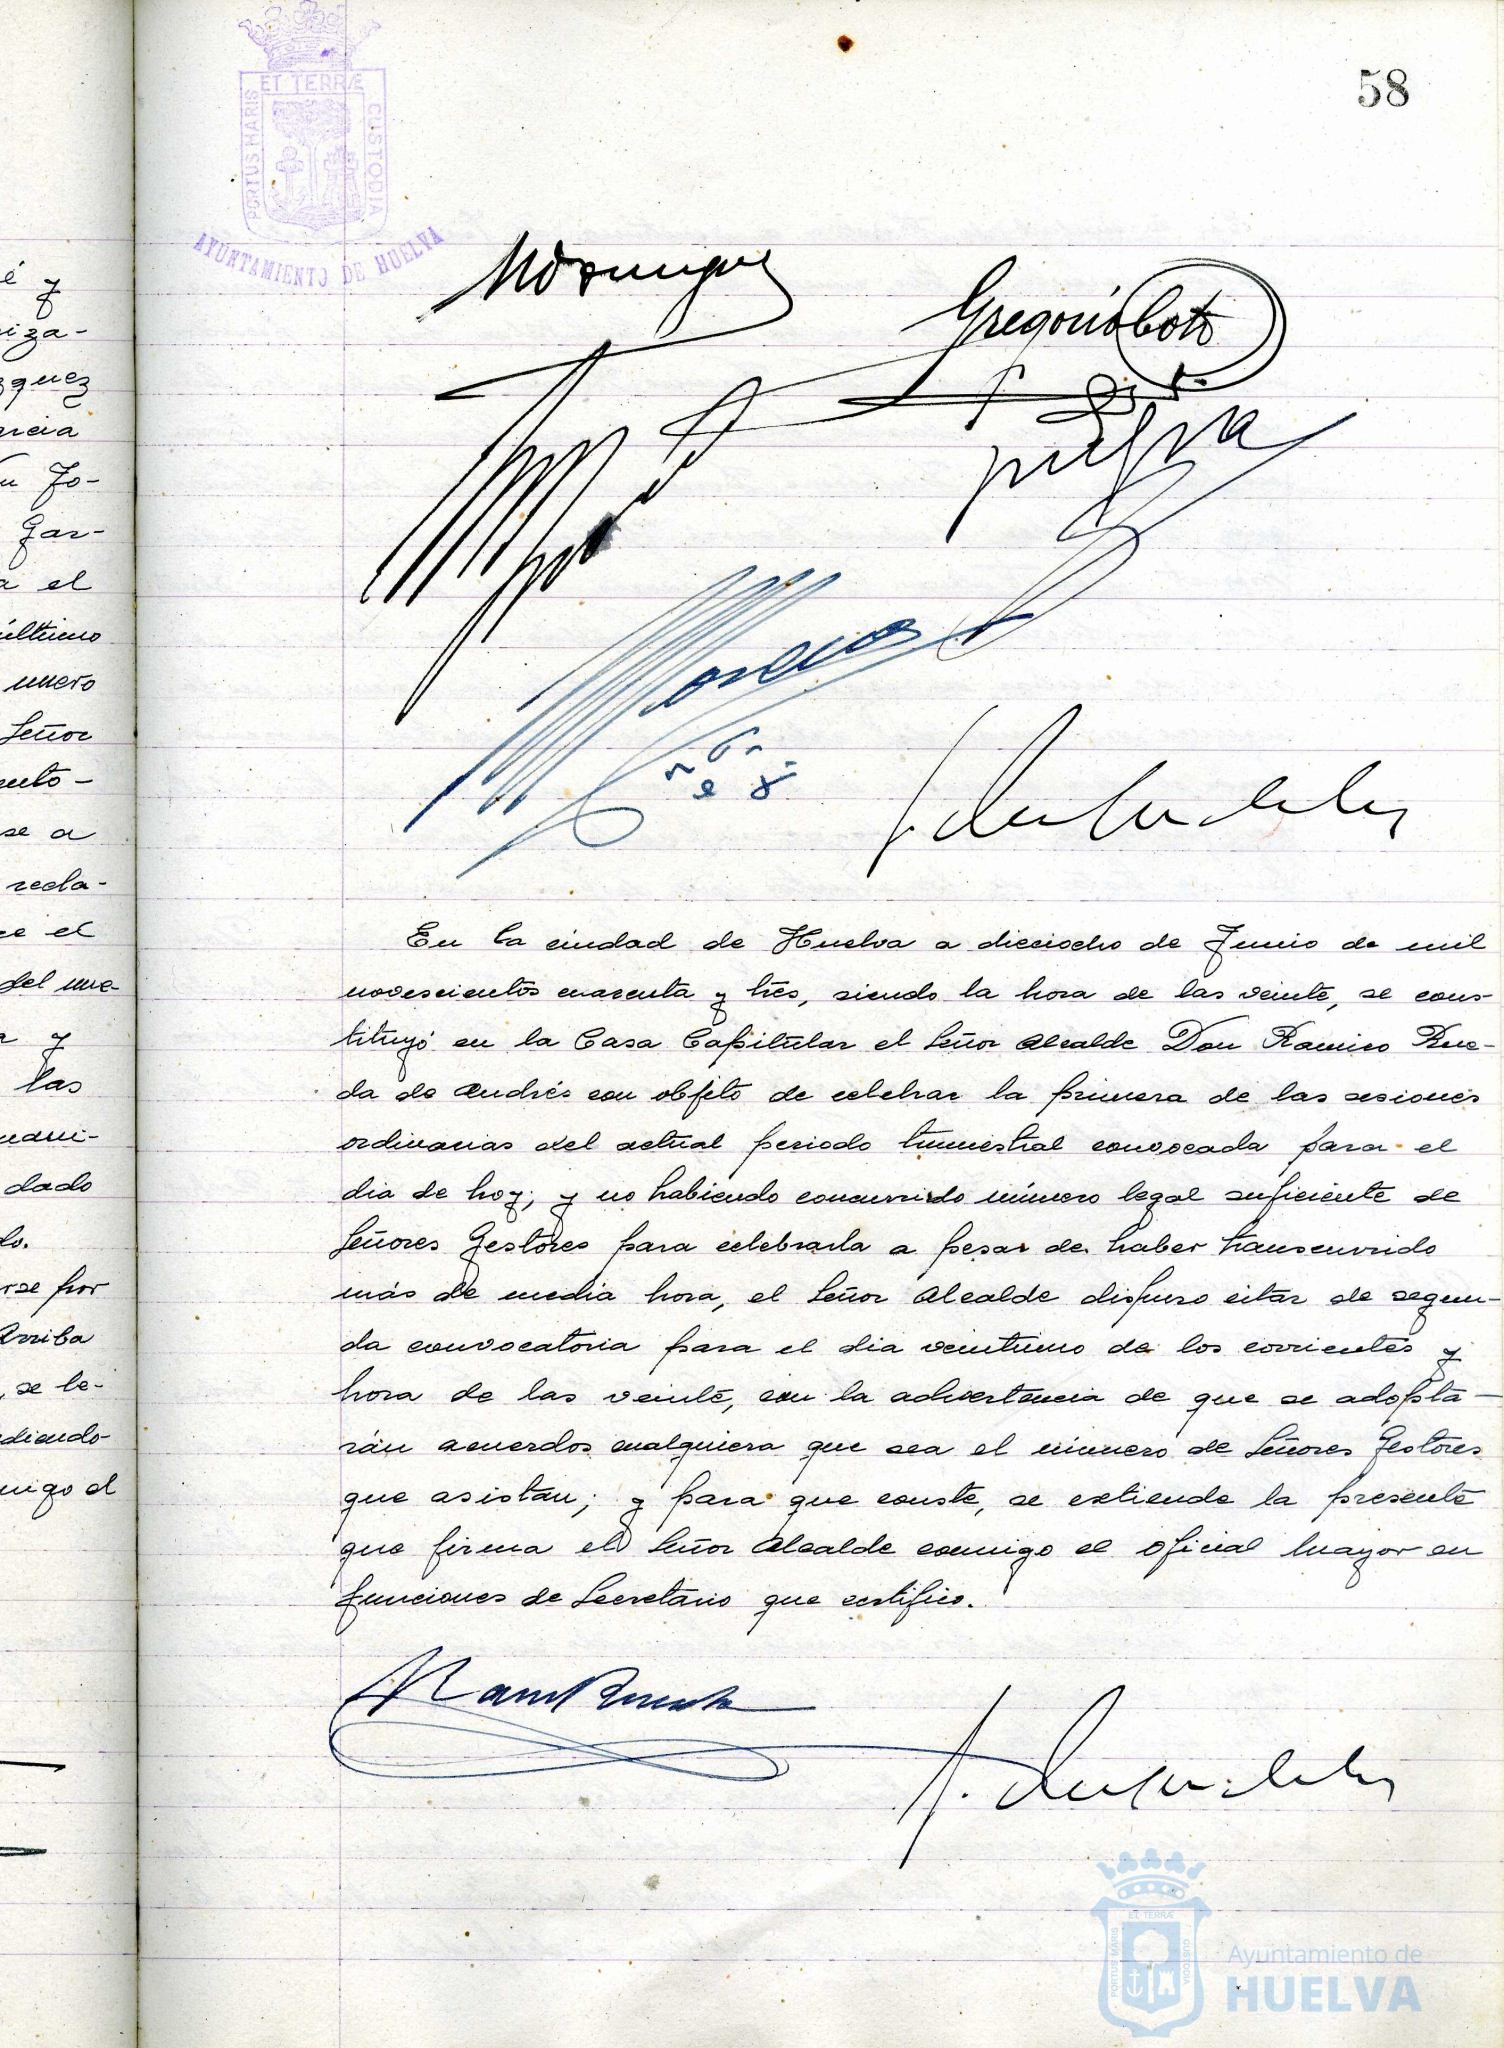 58
ET TERRÆ
PORTUS MARIS
CUSTODIA
AYUNTAMIENTO DE HUELVA
é y
riza-
zquez
arcia
Jo-
Gar-
a el
último
mero
Señor
ento-
se a
recla-
ce el
del me-
a y
las
mani-
dado
do.
rse por
Arriba
, se le-
diendo-
migo el
Gregorio Coto
En la ciudad de Huelva a dieciocho de Junio de mil
novescientos cuarenta y trés, siendo la hora de las veinte, se cons-
tituyó en la Casa Capitular el Señor Alcalde Don Ramiro Rue-
da de Andrés con objeto de celebrar la primera de las sesiones
ordinarias del actual periodo trimestral convocada para el
dia de hoy; y no habiendo concurrido número legal suficiente de
Señores Gestores para celebrarla a pesar de haber transcurrido
más de media hora, el Señor Alcalde dispuso citar de segun-
da convocatoria para el dia veintiuno de los corrientes y
hora de las veinte, con la advertencia de que se adopta-
rán acuerdos cualquiera que sea el número de Señores Gestores
que asistan; y para que conste, se extiende la presente
que firma el Señor Alcalde conmigo el Oficial Mayor en
funciones de Secretario que certifico.
Ram Rueda
ET TERRÆ
PORTUS MARIS
CUSTODIA
Ayuntamiento de
HUELVA